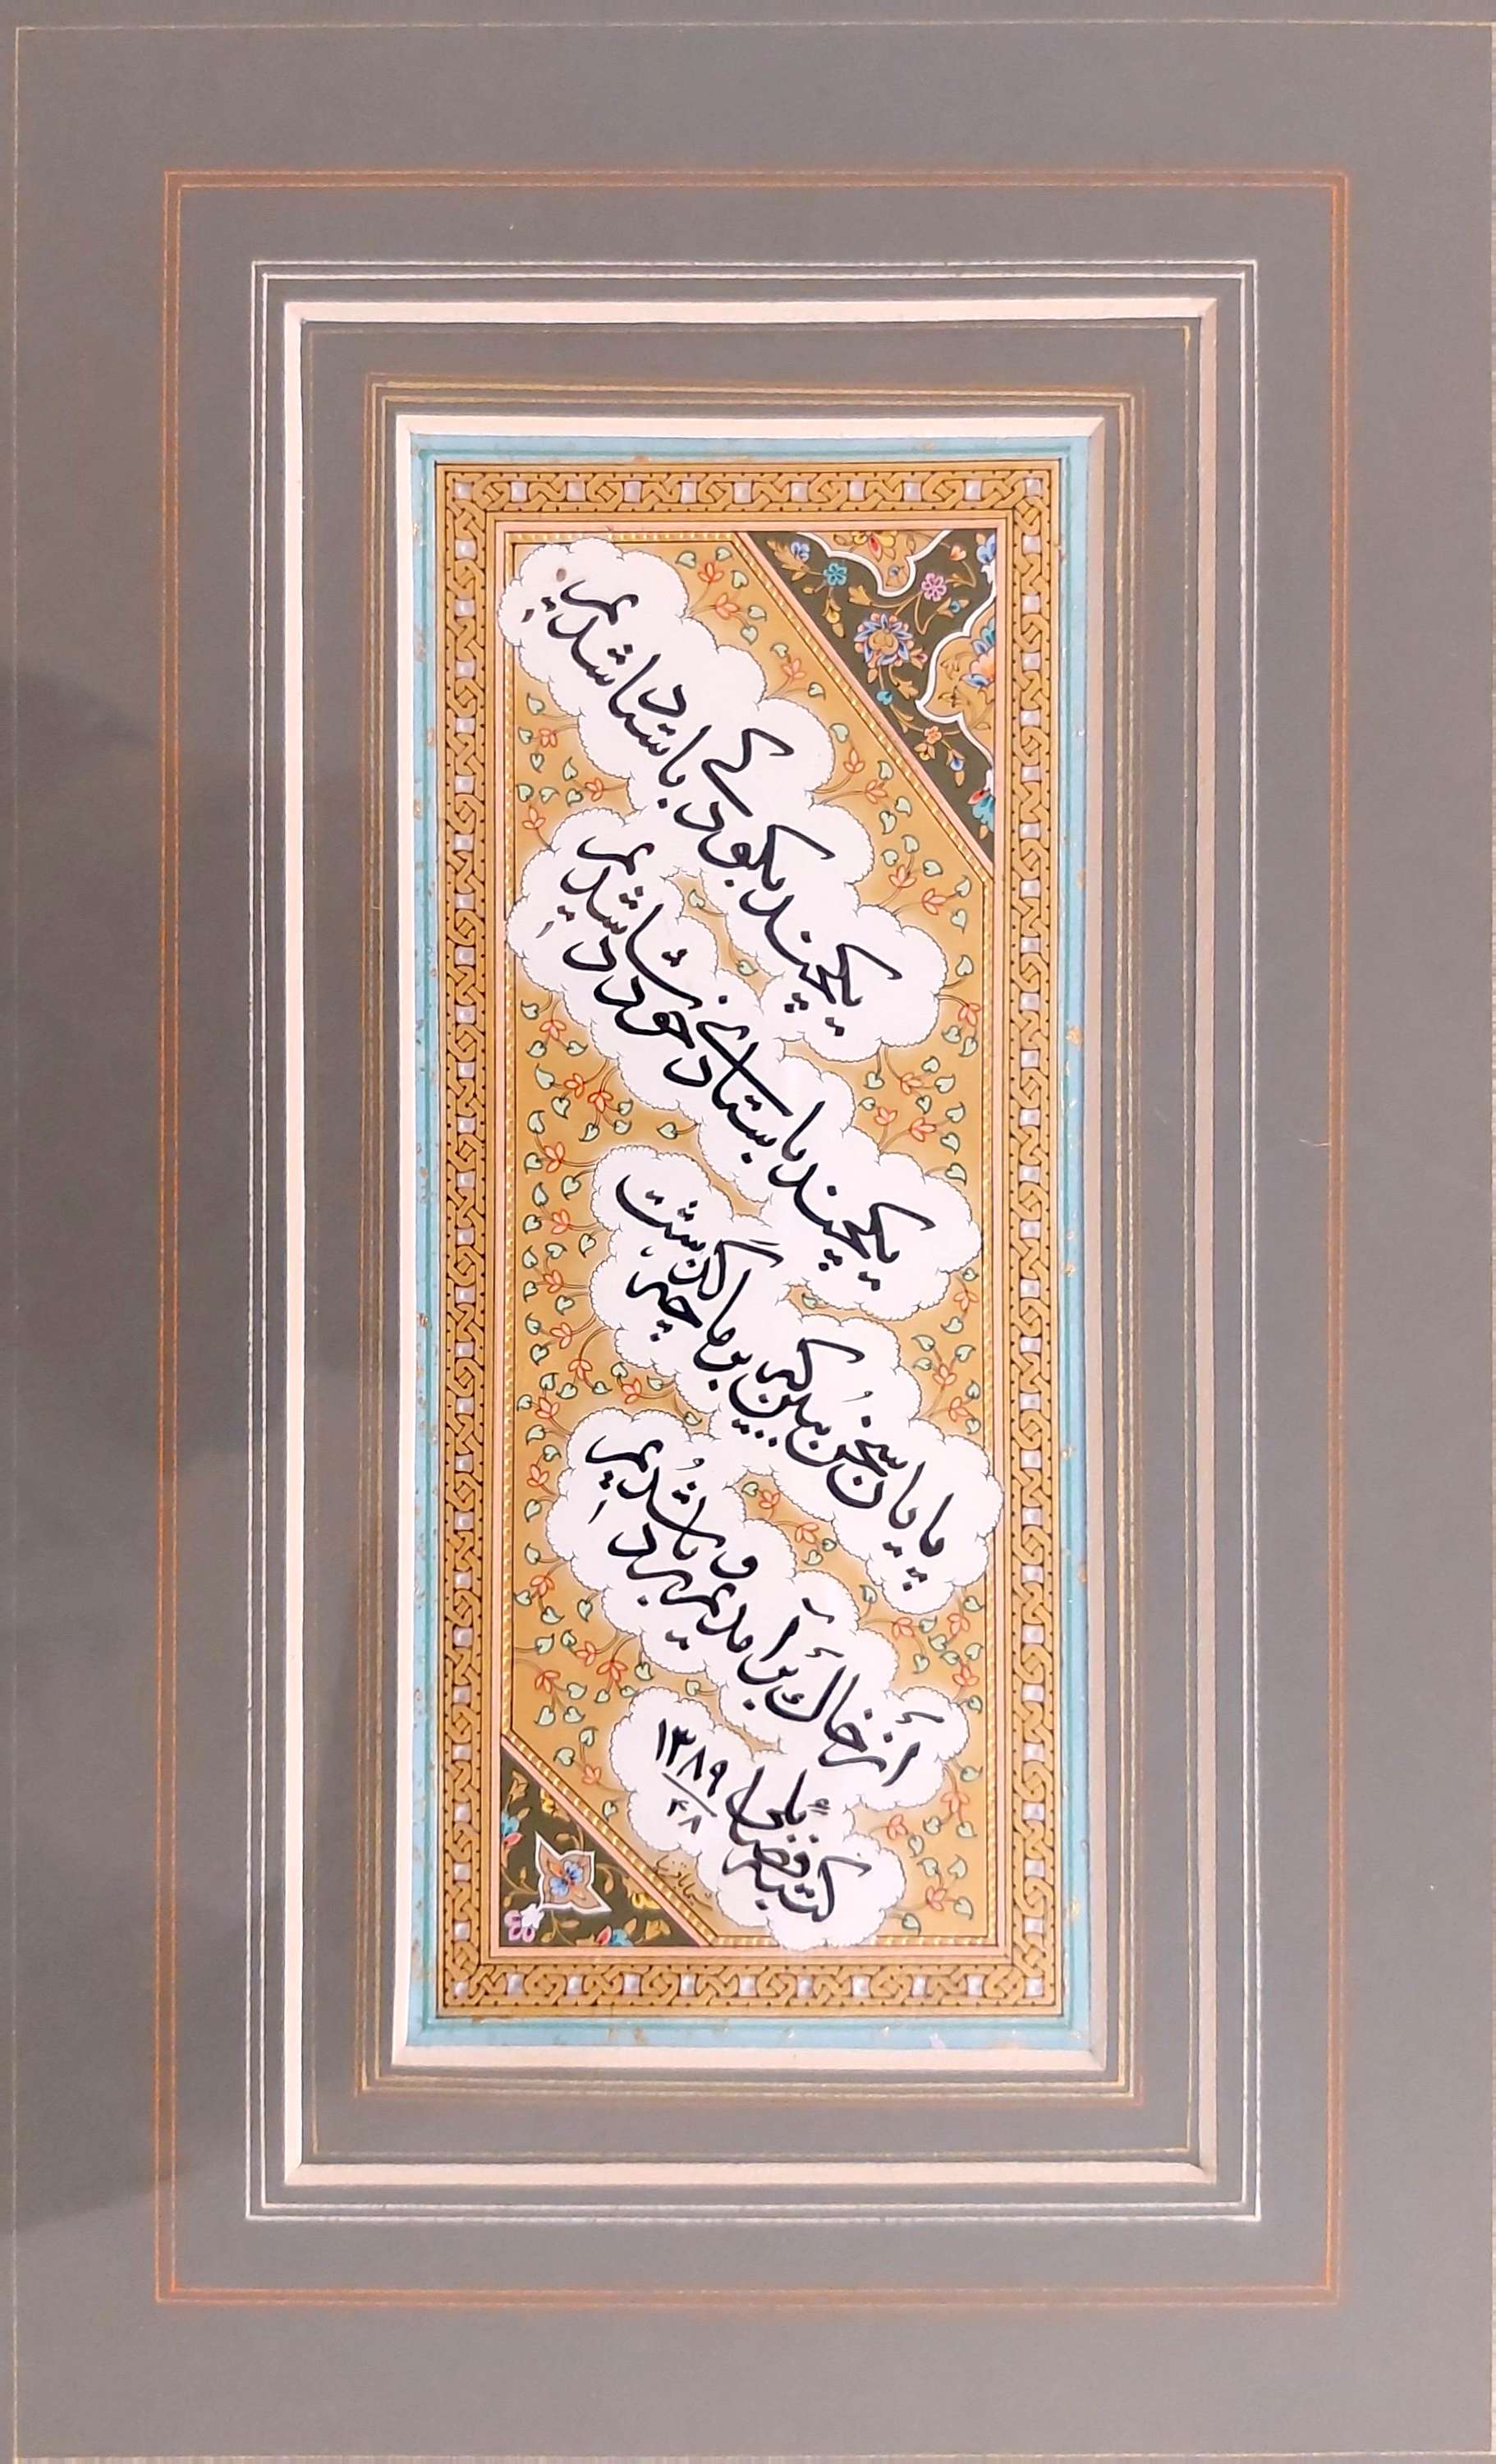 یکچند بکودکی باستاد شدیم
یکچند باستادی خود شاد شدیم
پایان سخن ببین که بر ما چه گذشت
از خاک برآمدیم و بر باد شدیم
کتبه فضائلی ۱۳۸۹
۴۸